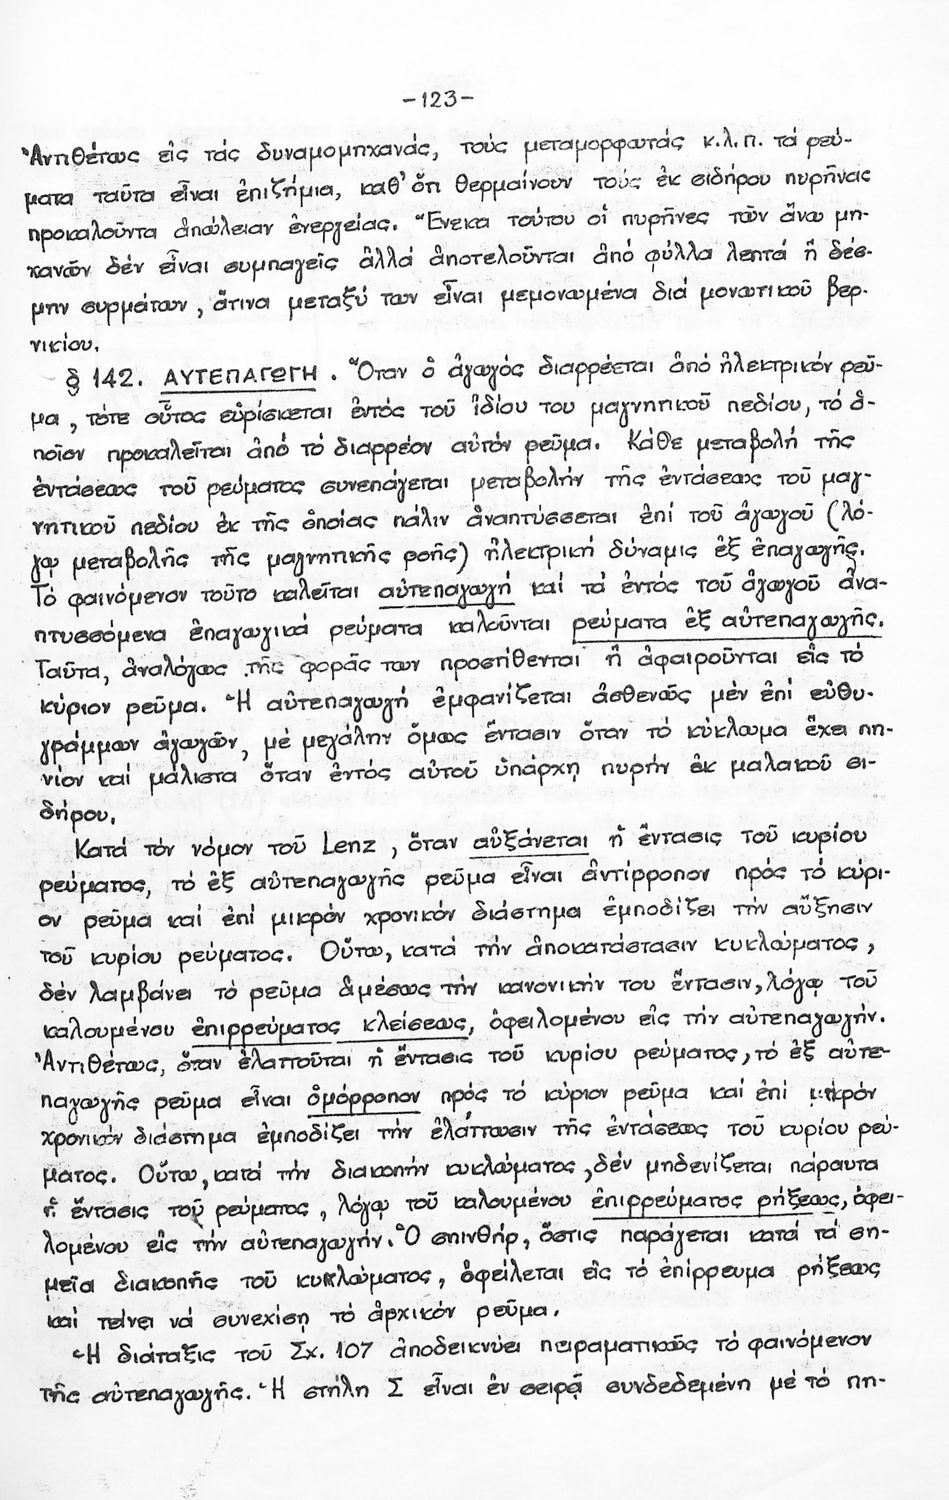 -123-
Ἀντιθέτως εἰς τάς δυναμομηχανάς, τούς μεταμορφωτάς κ.λ.π. τά ρεύ-
ματα ταῦτα εἶναι ἐπιζήμια, καθ' ὅτι θερμαίνουν τούς ἐκ σιδήρου πυρῆνας
προκαλοῦντα ἀπώλειαν ἐνεργείας. Ἕνεκα τούτου οἱ πυρῆνες τῶν ἄνω μη-
χανῶν δέν εἶναι συμπαγεῖς ἀλλά ἀποτελοῦνται ἀπό φύλλα λεπτά ἤ δέσ-
μην συρμάτων, ἅτινα μεταξύ των εἶναι μεμονωμένα διά μονωτικοῦ βερ-
νικίου.
§ 142. ΑΥΤΕΠΑΓΩΓΗ. Ὅταν ὁ ἀγωγός διαρρέεται ἀπό ἠλεκτρικόν ρεῦ-
μα, τότε οὗτος εὑρίσκεται ἐντός τοῦ ἰδίου του μαγνητικοῦ πεδίου, τό ὁ-
ποῖον προκαλεῖται ἀπό τό διαρρέον αὐτόν ρεῦμα. Κάθε μεταβολή τῆς
ἐντάσεως τοῦ ρεύματος συνεπάγεται μεταβολήν τῆς ἐντάσεως τοῦ μαγ-
νητικοῦ πεδίου ἐκ τῆς ὁποίας πάλιν ἀναπτύσσεται ἐπί τοῦ ἀγωγοῦ (λό-
γῳ μεταβολῆς τῆς μαγνητικῆς ροῆς) ἠλεκτρική δύναμις ἐξ ἐπαγωγῆς.
Τό φαινόμενον τοῦτο καλεῖται αὐτεπαγωγή καί τά ἐντός τοῦ ἀγωγοῦ ἀνα-
πτυσσόμενα ἐπαγωγικά ρεύματα καλοῦνται ρεύματα ἐξ αὐτεπαγωγῆς.
Ταῦτα, ἀναλόγως τῆς φορᾶς των προστίθενται ἤ ἀφαιροῦνται εἰς τό
κύριον ρεῦμα. Ἡ αὐτεπαγωγή ἐμφανίζεται ἀσθενῶς μέν ἐπί εὐθυ-
γράμμων ἀγωγῶν, μέ μεγάλην ὅμως ἔντασιν ὅταν τό κύκλωμα ἔχει πη-
νίον καί μάλιστα ὅταν ἐντός αὐτοῦ ὑπάρχῃ πυρήν ἐκ μαλακοῦ σι-
δήρου.
Κατά τόν νόμον τοῦ Lenz, ὅταν αὐξάνεται ἡ ἔντασις τοῦ κυρίου
ρεύματος, τό ἐξ αὐτεπαγωγῆς ρεῦμα εἶναι ἀντίρροπον πρός τό κύρι-
ον ρεῦμα καί ἐπί μικρόν χρονικόν διάστημα ἐμποδίζει τήν αὔξησιν
τοῦ κυρίου ρεύματος. Οὕτω, κατά τήν ἀποκατάστασιν κυκλώματος,
δέν λαμβάνει τό ρεῦμα ἀμέσως τήν κανονικήν του ἔντασιν, λόγῳ τοῦ
καλουμένου ἐπιρρεύματος κλείσεως, ὀφειλομένου εἰς τήν αὐτεπαγωγήν.
Ἀντιθέτως, ὅταν ἐλαττοῦται ἡ ἔντασις τοῦ κυρίου ρεύματος, τό ἐξ αὐτε-
παγωγῆς ρεῦμα εἶναι ὁμόρροπον πρός τό κύριον ρεῦμα καί ἐπί μικρόν
χρονικόν διάστημα ἐμποδίζει τήν ἐλάττωσιν τῆς ἐντάσεως τοῦ κυρίου ρεύ-
ματος. Οὕτω, κατά τήν διακοπήν κυκλώματος, δέν μηδενίζεται πάραυτα
ἡ ἔντασις τοῦ ρεύματος, λόγῳ τοῦ καλουμένου ἐπιρρεύματος ρήξεως, ὀφει-
λομένου εἰς τήν αὐτεπαγωγήν. Ὁ σπινθήρ, ὅστις παράγεται κατά τά ση-
μεῖα διακοπῆς τοῦ κυκλώματος, ὀφείλεται εἰς τό ἐπίρρευμα ρήξεως
καί τείνει νά συνεχίσῃ τό ἀρχικόν ρεῦμα.
Ἡ διάταξις τοῦ Σχ. 107 ἀποδεικνύει πειραματικῶς τό φαινόμενον
τῆς αὐτεπαγωγῆς. Ἡ στήλη Σ εἶναι ἐν σειρᾷ συνδεδεμένη μέ τό πη-